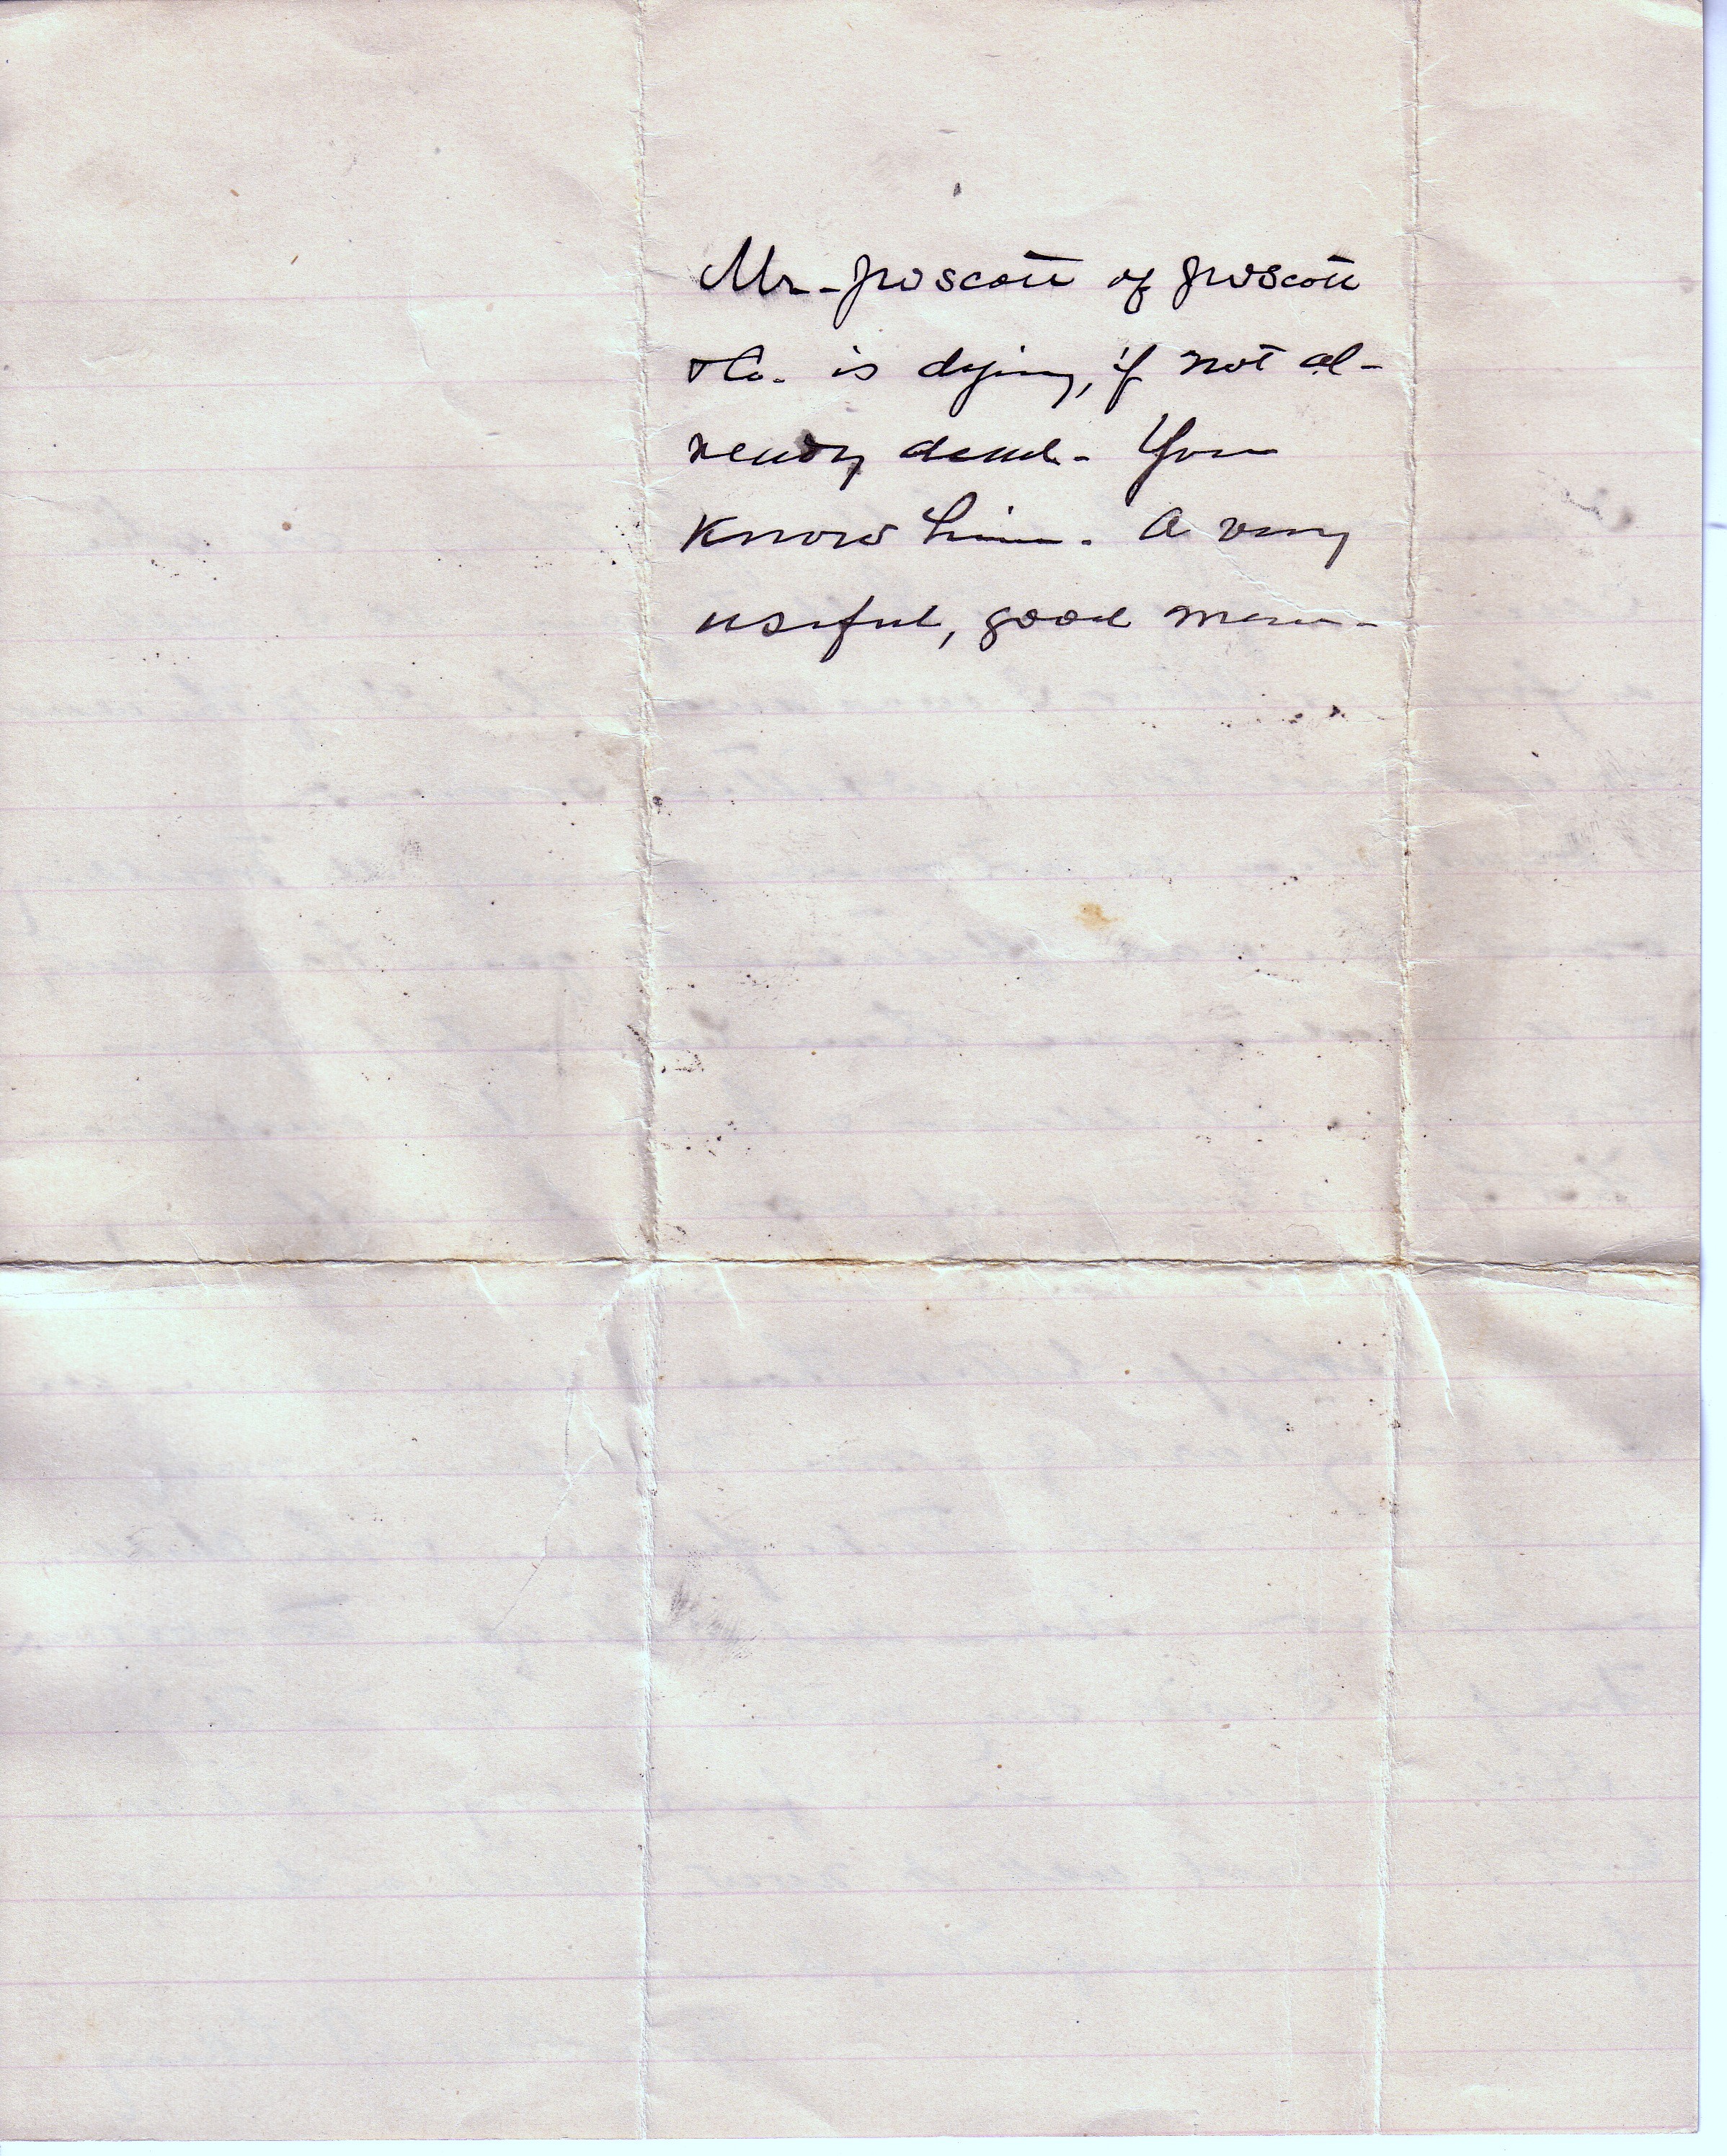 Mr. Prescott of Prescott
& Co. is dying, if not al-
ready dead. You
know him. A very
useful, good man.